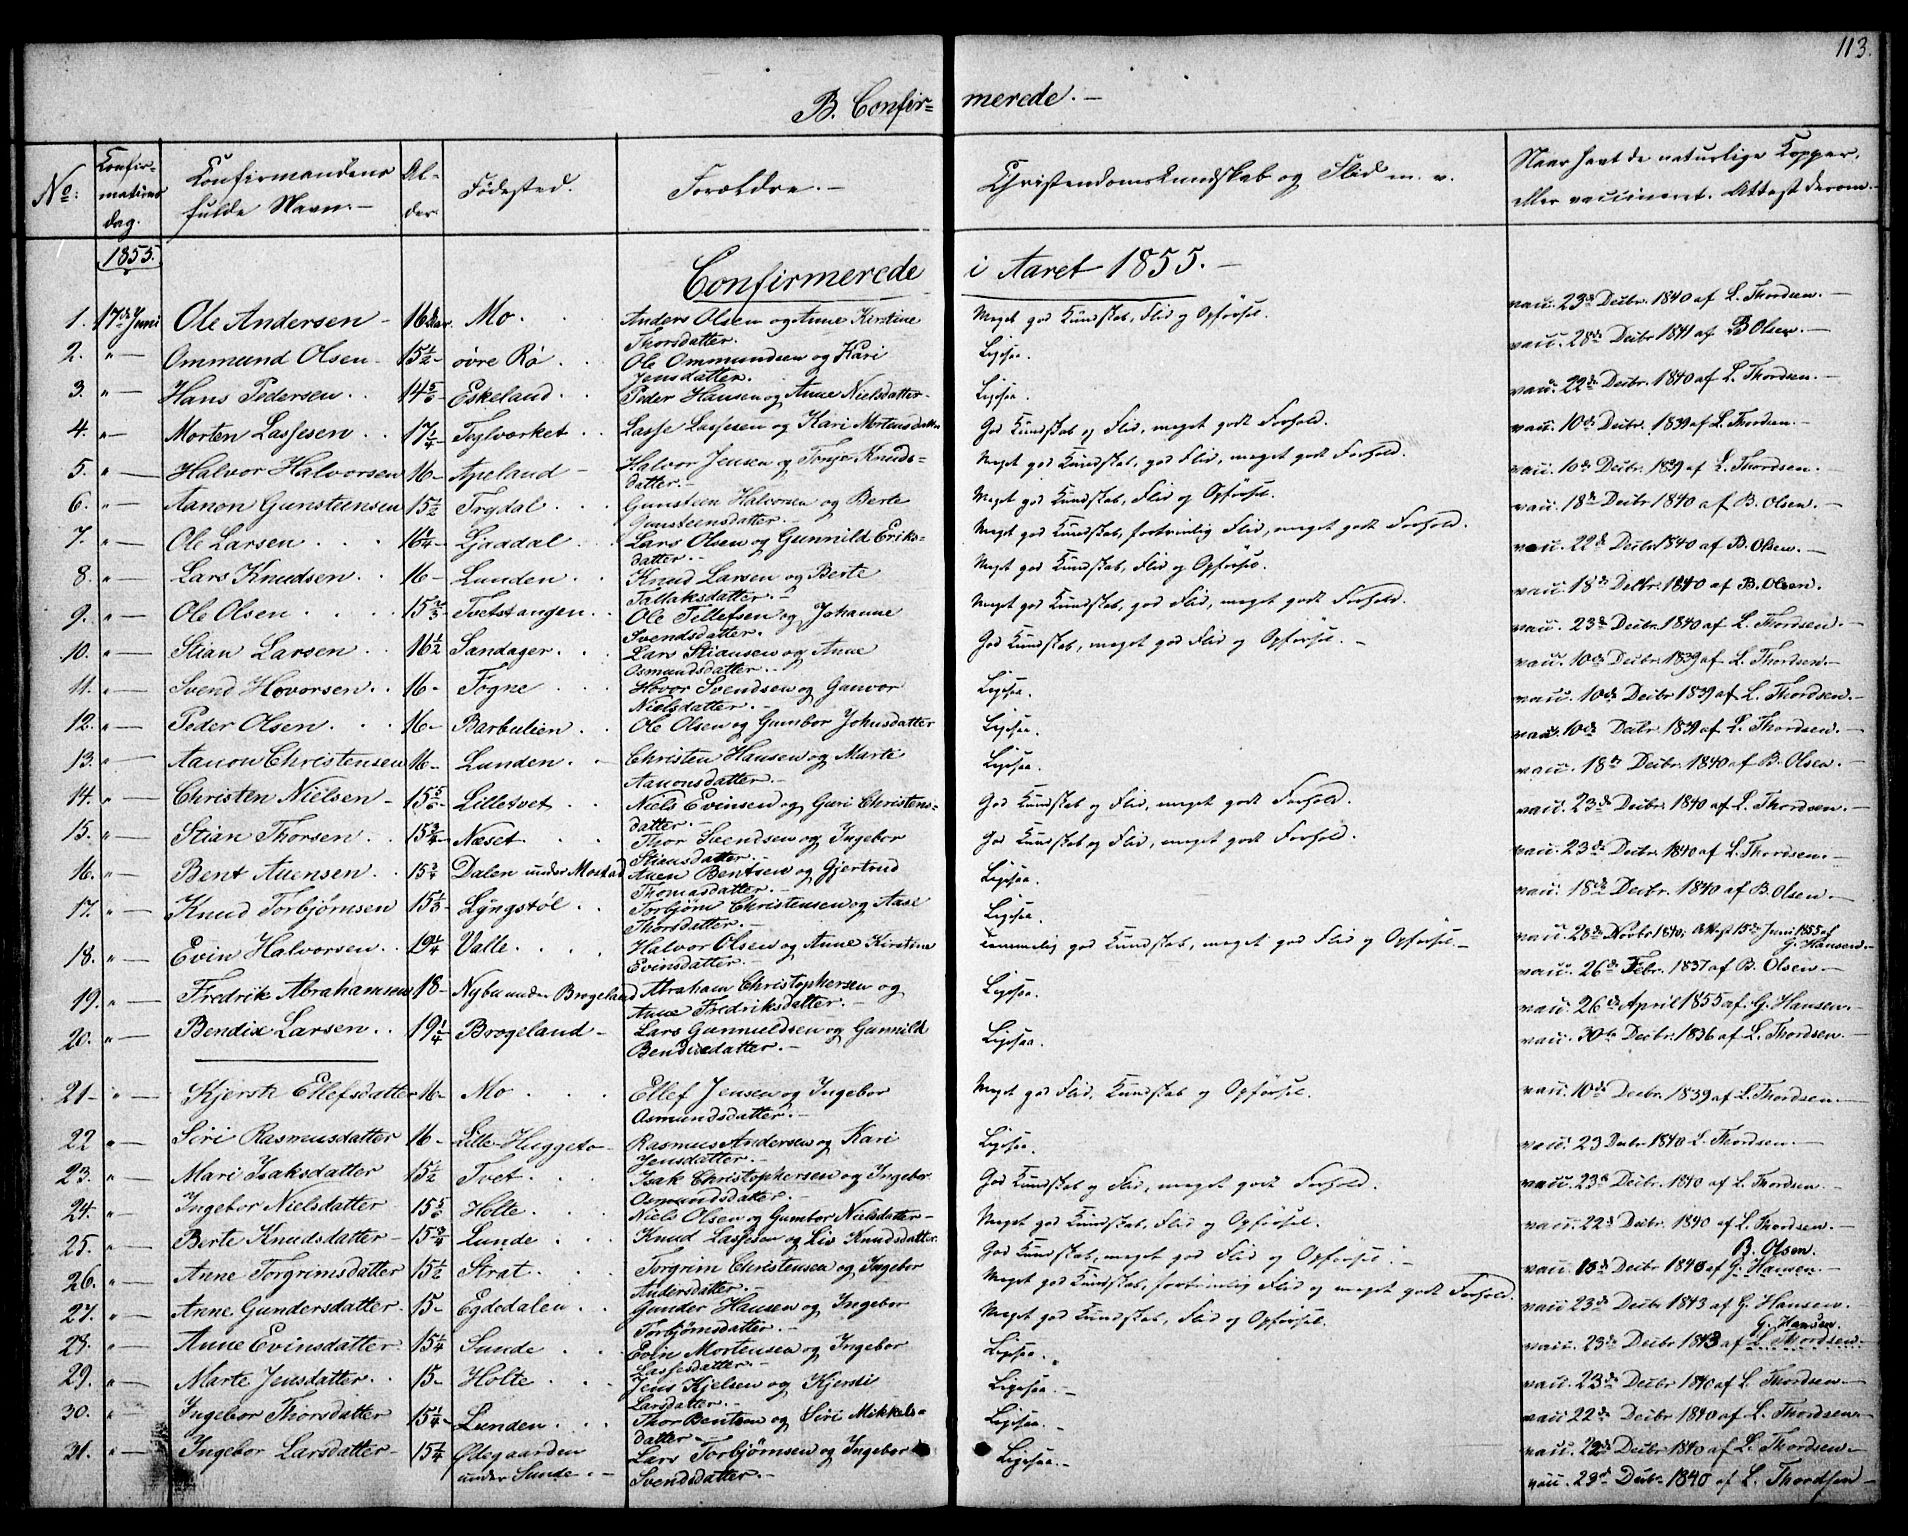 113.
B. Confir= merede. —
No: Confirmations dag. Confirmandens fulde Navn. — Alder. Fødested. Forældre. — Christendomskundskab og Flid m. v. Naar havt de naturlige Kopper, eller vaccineret. Attest derom. —
1855.
Confirmerede i Aaret 1855. —
1. 17de Juni Ole Andersen — 16 Aar Mo. Anders Olsen og Anne Kirstine Thorsdatter. Meget god Kundskab, Flid og Opførsel. vacc. 23de Decbr. 1840 af L. Thordsen. —
2. " — Ommund Olsen — 15 1/2 — øvre Rø Ole Ommundsen og Kari Jensdatter. Ligesaa. vacc. 28de Decbr 1841 af B Olsen. —
3. " — Hans Pedersen 14 5/6 — Eskeland Peder Hansen og Anne Nielsdatter — Ligesaa. vacc. 22de Decbr. 1840 af L. Thordsen. —
4. " — Morten Lassesen 17 1/4 — Teglværket Lasse Lassesen og Kari Mortensdatter God Kundskab og Flid, meget godt Forhold. vacc. 10de Decbr. 1839 af L. Thordsen. —
5. " — Halvor Halvorsen 16 — Apeland — Halvor Jensen og Tonje Knuds= datter. — Meget god Kundskab, god Flid, meget godt Forhold. vacc. 10de Decbr. 1839 af L. Thordsen. —
6. " — Aanon Gunsteensen 15 1/2 Trydal Gunsteen Halvorsen og Berte Gunsteensdatter. — Meget god Kundskab, Flid og Opførsel. vacc. 18de Decbr 1840 af B. Olsen. —
7. " — Ole Larsen 16 1/4 — Ljaadal Lars Olsen og Gunnild Eriks= datter. — Meget god Kundskab, fortrinlig Flid, meget godt Forhold. vacc. 22de Decbr 1840 af B. Olsen. —
8. " — Lars Knudsen 16 — Lunden Knud Larsen og Berte Tallaksdatter. — Meget god Kundskab, Flid og Opførsel. vacc. 18de Decbr. 1840 af B. Olsen.
9. " — Ole Olsen 15 2/3 — Tvetstangen Ole Tellefsen og Johanne Svendsdatter. Meget god Kundskab, god Flid, meget godt Forhold. vacc. 23de Decbr. 1840 af L. Thordsen. —
10. " — Stian Larsen 16 1/2 Sandager Lars Stiansen og Anne Osmundsdatter. — God Kundskab, meget god Flid og Opførsel. — vacc. 10de Decbr. 1839 af L. Thordsen. —
11. " — Svend Hovorsen 16 — Fogne Hovor Svendsen og Gunvor Nielsdatter. — Ligesaa. vacc. 10de Decbr 1839 af L. Thordsen. —
12. " — Peder Olsen 16 — Barbulien Ole Olsen og Gumbor Johnsdatter Ligesaa. vacc. 10de Decbr 1839 af L. Thordsen. —
13. " — Aanon Christensen 16 — Lunden Christen Hansen og Marte Aanonsdatter — Ligesaa. vacc. 18de Decbr. 1840 af B. Olsen. —
14. " — Christen Nielsen — 15 5/6 — Lilletvet Niels Evinsen og Guri Christens= datter. — God Kundskab og Flid, meget godt Forhold. vacc. 23de Decbr. 1840 af L. Thordsen. —
15. " — Stian Thorsen 15 3/4 — Næset Thor Svendsen og Ingebor Stiansdatter. — God Kundskab og Flid, meget godt Forhold. vacc. 23de Decbr. 1840 af L. Thordsen. —
16. " — Bent Auensen 15 3/4 Dalen under Mostad Auen Bentsen og Gjertrud Thomasdatter. — Ligesaa. vacc. 18de Decbr. 1840 af B. Olsen. —
17. " — Knud Torbjørnsen 15 1/3 — Lyngstøl Torbjørn Christensen og Aase Thorsdatter. — Ligesaa. vacc. 28de Novbr 1840; Attest 15de Juni 1855 af G. Hansen. —
18. " — Evin Halvorsen 19 1/4 Valle Halvor Olsen og Anne Kirstine Evinsdatter. — Temmelig god Kundskab, meget god Flid og Opførsel. — vacc. 26de Febr. 1837 af B. Olsen —
19. " — Fredrik Abrahamsen 18 — Nybu under Brogeland Abraham Christophersen og Anne Fredriksdatter. — Ligesaa. vacc. 26de April 1855 af G. Hansen.
20. " — Bendix Larsen 19 1/4 Brogeland — Lars Gunnuldsen og Gunnild Bendixdatter. — Ligesaa. vacc. 30te Decbr. 1836 af L. Thordsen. —
21 — " — Kjersti Ellefsdatter 16 — Mo Ellef Jensen og Ingebor Osmundsdatter. — Meget god Flid, Kundskab og Opførsel. vacc. 10de Decbr 1839 af L. Thordsen. —
22 " — Siri Rasmusdatter 16 — Lille-Huggeto — Rasmus Andersen og Kari Jensdatter. — Ligesaa. vacc. 23 Decbr 1840 L. Thordsen. —
23. " — Mari Isaksdatter 15 1/2 Tvet Isak Christophersen og Ingebor Osmundsdatter. — God Kundskab og Flid, meget godt Forhold. vacc. 23de Decbr. 1840 af L. Thordsen. —
24. " — Ingebor Nielsdatter 15 5/6 Holte Niels Olsen og Gumbor Nielsdatter — Meget god Kundskab, Flid og Opførsel. vacc. 22de Decbr. 1840 af L. Thordsen. —
25. " — Berte Knudsdatter — 15 3/4 Lunde Knud Lassesen og Liv Knudsdatter. God Kundskab, meget god Flid og Opførsel. — vacc. 18de Decbr 1840 af G. Hansen. B. Olsen.
26. " — Anne Torgrimsdatter 15 1/2 Strat Torgrim Christensen og Ingebor Andersdatter. — Meget god Kundskab, fortrinlig Flid og meget godt Forhold. vacc 23de Decbr 1843 af G. Hansen.
27. " — Anne Gundersdatter 15 — Egdedalen Gunder Hansen og Ingebor Torbjørnsdatter. — Meget god Kundskab, Flid og Opførsel. vacc. 23de Decbr 1843 af L. Thordsen. G. Hansen.
28. " — Anne Evinsdatter 15 1/4 Sunde Evin Mortensen og Ingebor Lassesdatter. — Ligesaa. vacc. 23de Decbr 1840 af L. Thordsen —
29. " — Marte Jensdatter 15 — Holte Jens Kjelsen og Kjersti Larsdatter. — Ligesaa. — vacc 22de Decbr 1840 af L. Thordsen —
30. " Ingebor Thorsdatter 15 1/4 — Lunden Thor Bentsen og Siri Mikkels= datter — Ligesaa. — vacc. 22de Decbr 1840 af L. Thordsen —
31. " — Ingebor Larsdatter — 15 1/4 Ødegaarden under Sunde. — Lars Torbjørnsen og Ingebor Svendsdatter. — Ligesaa. — vacc. 23de Decbr. 1840 af L. Thordsen —